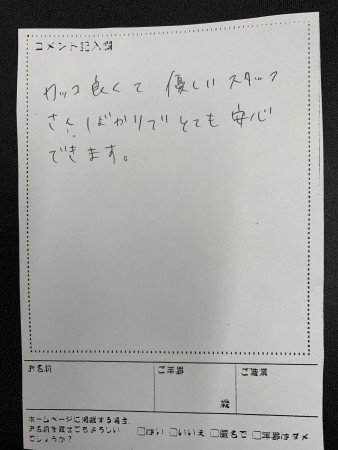 コメント記入欄
カッコ良くて 優しいスタッフ
さんばかりでとても安心
できます。
お名前 ご年齢 ご職業
歳
ホームページに掲載する場合、
お名前を載せてもよろしい
でしょうか？ □はい □いいえ □匿名で □年齢はダメ